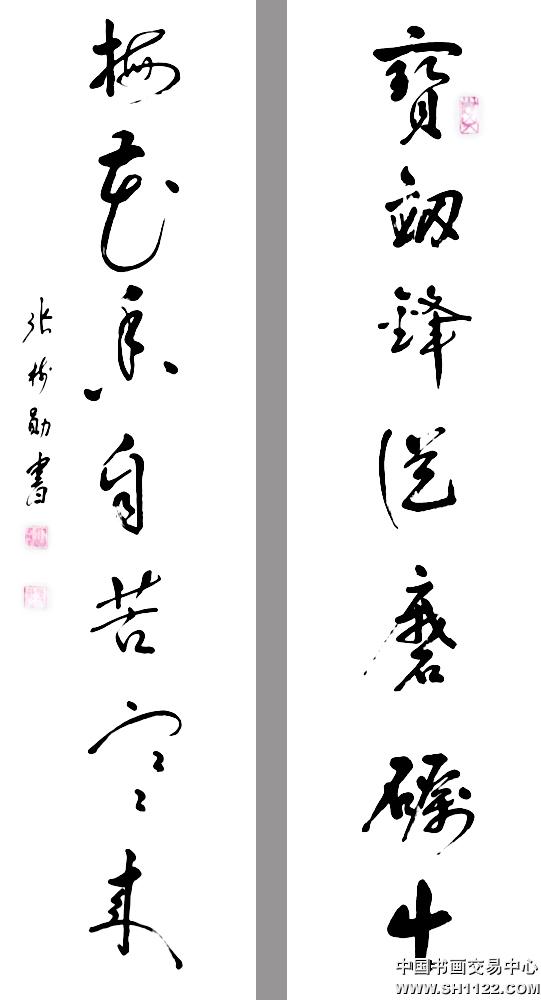 寶劔鋒從磨礪出
梅花香自苦寒来
张树勛書
中国书画交易中心
www.SH1122.com